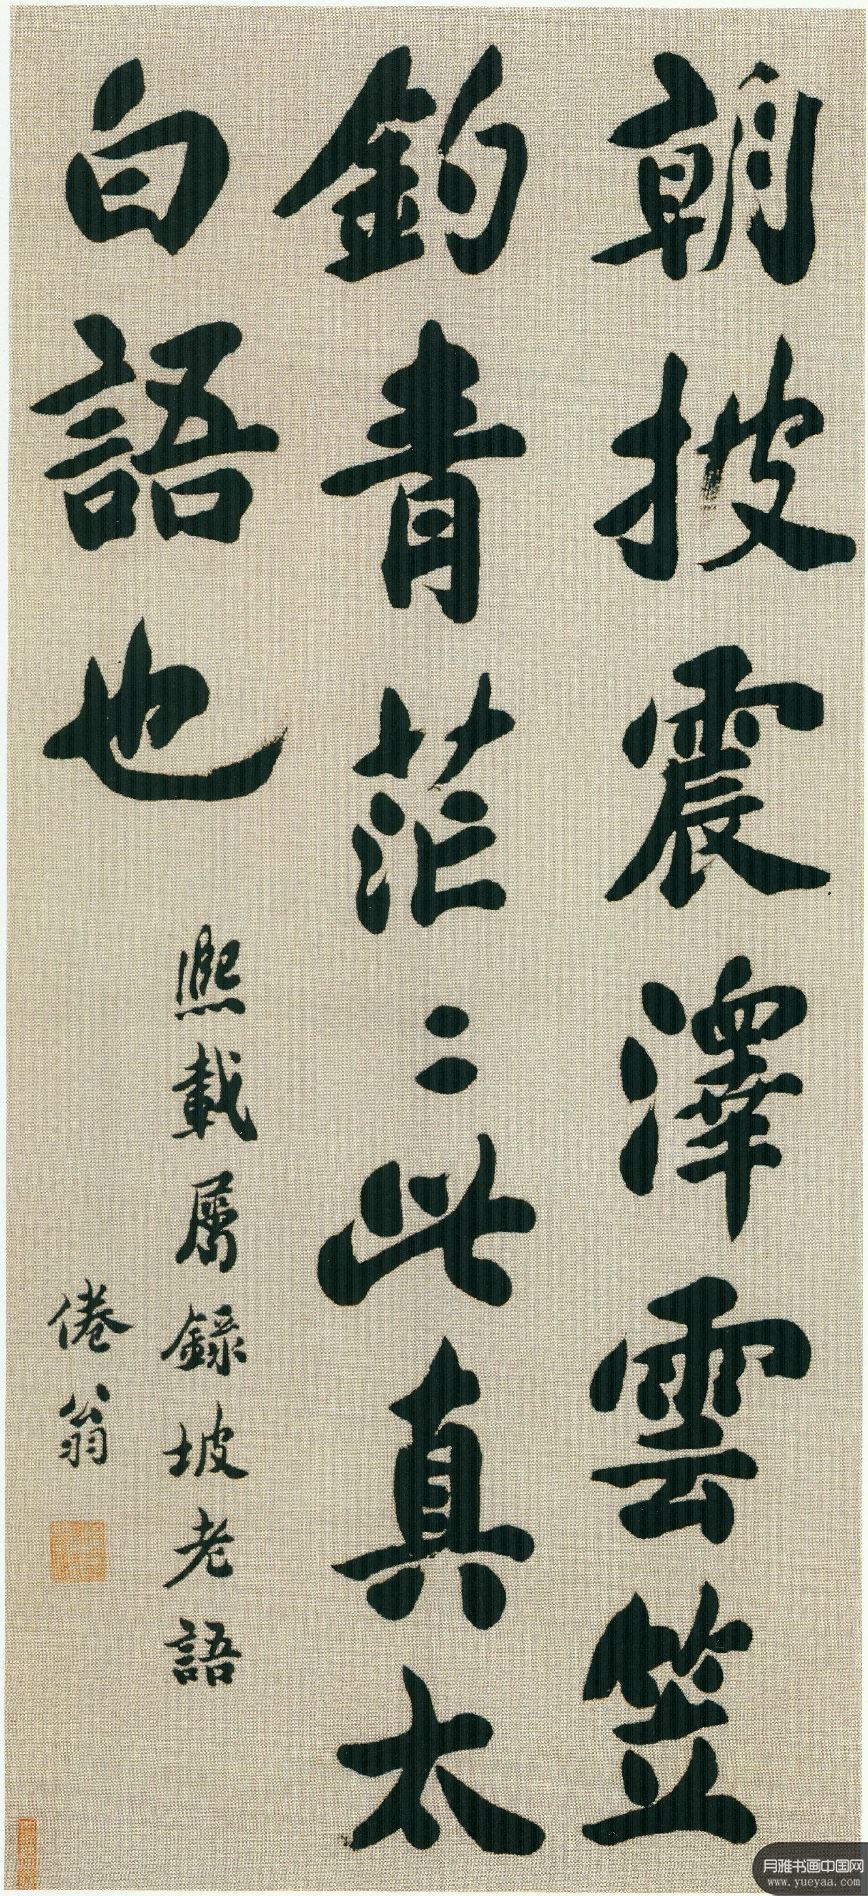 朝披震澤雲笠
釣青茫〻此真太
白語也
熙載屬錄坡老語
倦翁
月雅书画中国网
www.yueyaa.com